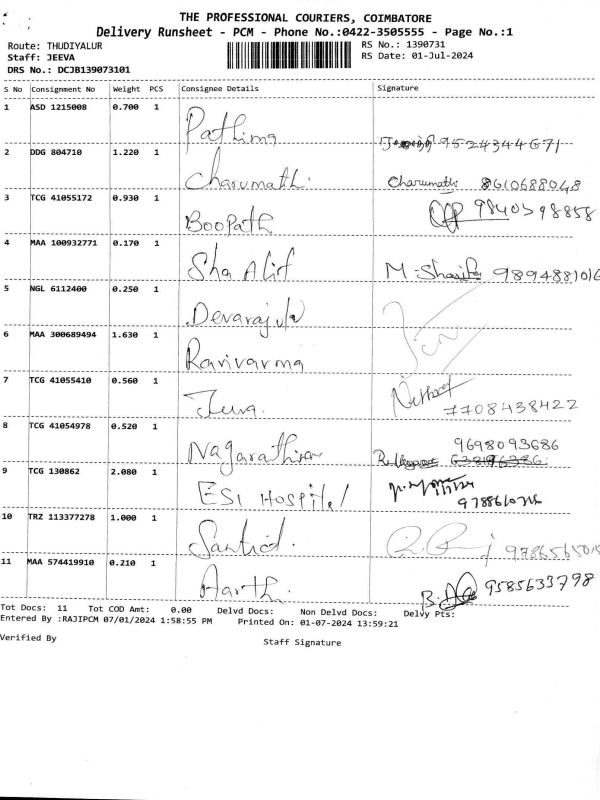 THE PROFESSIONAL COURIERS, COIMBATORE
Delivery Runsheet - PCM - Phone No.:0422-3505555 - Page No.:1
Route: THUDIYALUR
RS No.: 1390731
Staff: JEEVA
RS Date: 01-Jul-2024
DRS No.: DCJB139073101
S No Consignment No Weight PCS Consignee Details Signature
1 ASD 1215008 0.700 1
Pathima 9524344671
2 DDG 804710 1.220 1
Charumathi. Charumathi 8610688048
3 TCG 41055172 0.930 1
Boopath 9840398858
4 MAA 100932771 0.170 1
Sha Alif M-Sharifa
5 NGL 6112400 0.250 1
Devarajulu
6 MAA 300689494 1.630 1
Ravivarma
7 TCG 41055410 0.560 1
Jeeva. 7708438422
8 TCG 41054978 0.520 1
9698093686
Nagarathinam
9 TCG 130862 2.080 1
ESI Hospital
10 TRZ 113377278 1.000 1
11 MAA 574419910 0.210 1
Aarthi. 9585633798
Tot Docs: 11 Tot COD Amt: 0.00 Delvd Docs: Non Delvd Docs: Delvy Pts:
Entered By :RAJIPCM 07/01/2024 1:58:55 PM Printed On: 01-07-2024 13:59:21
Verified By Staff Signature